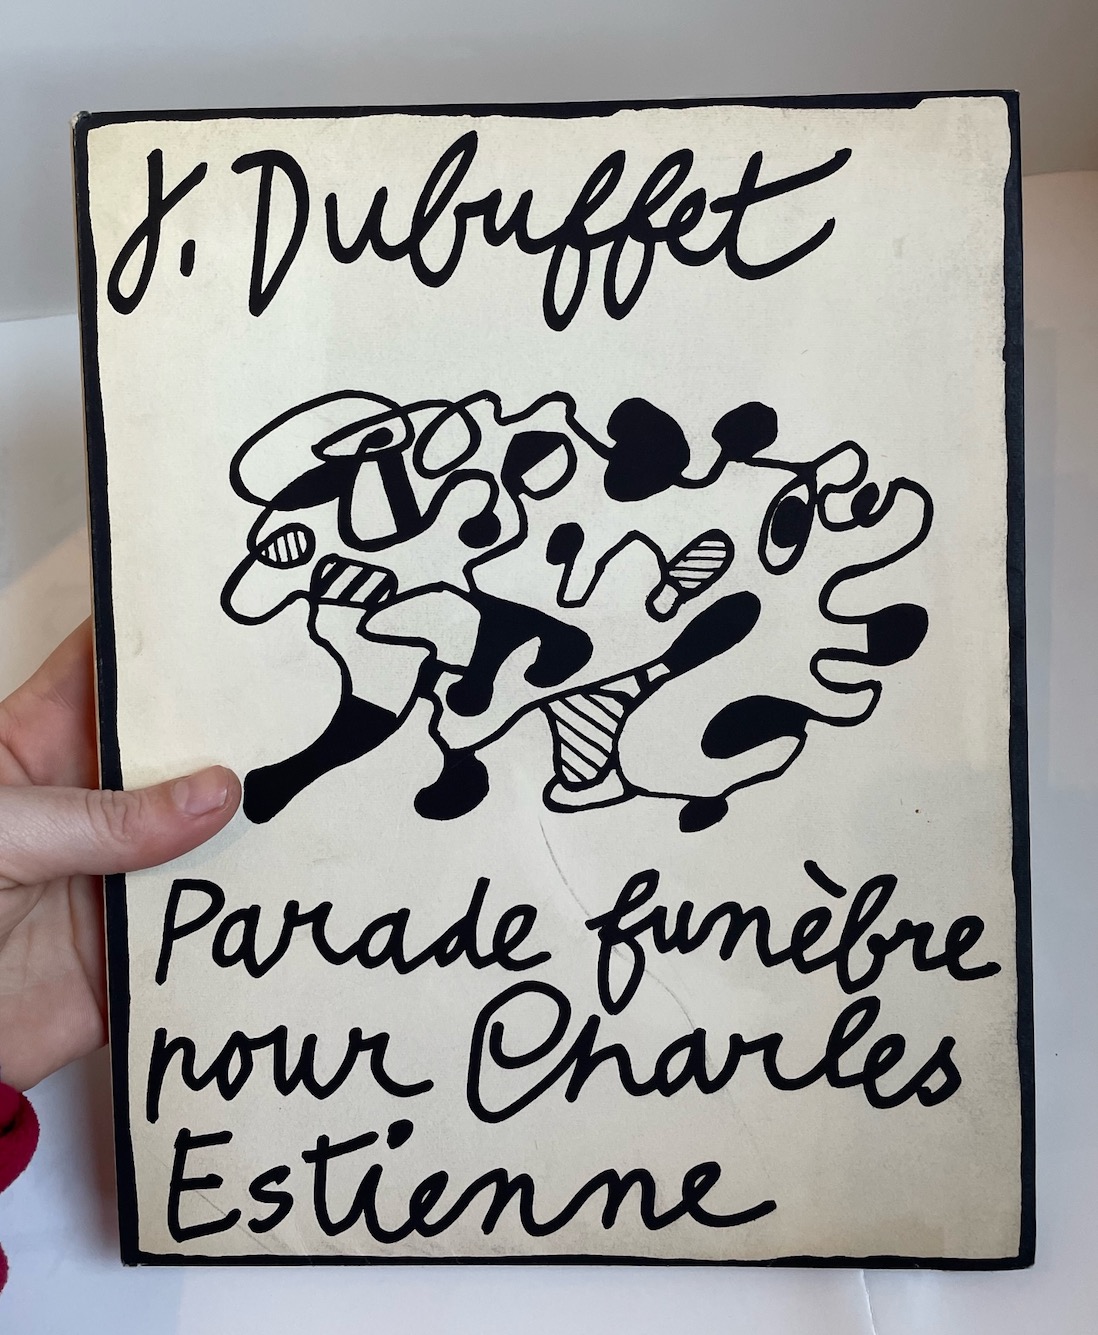 J. Dubuffet
Parade funèbre
pour Charles
Estienne